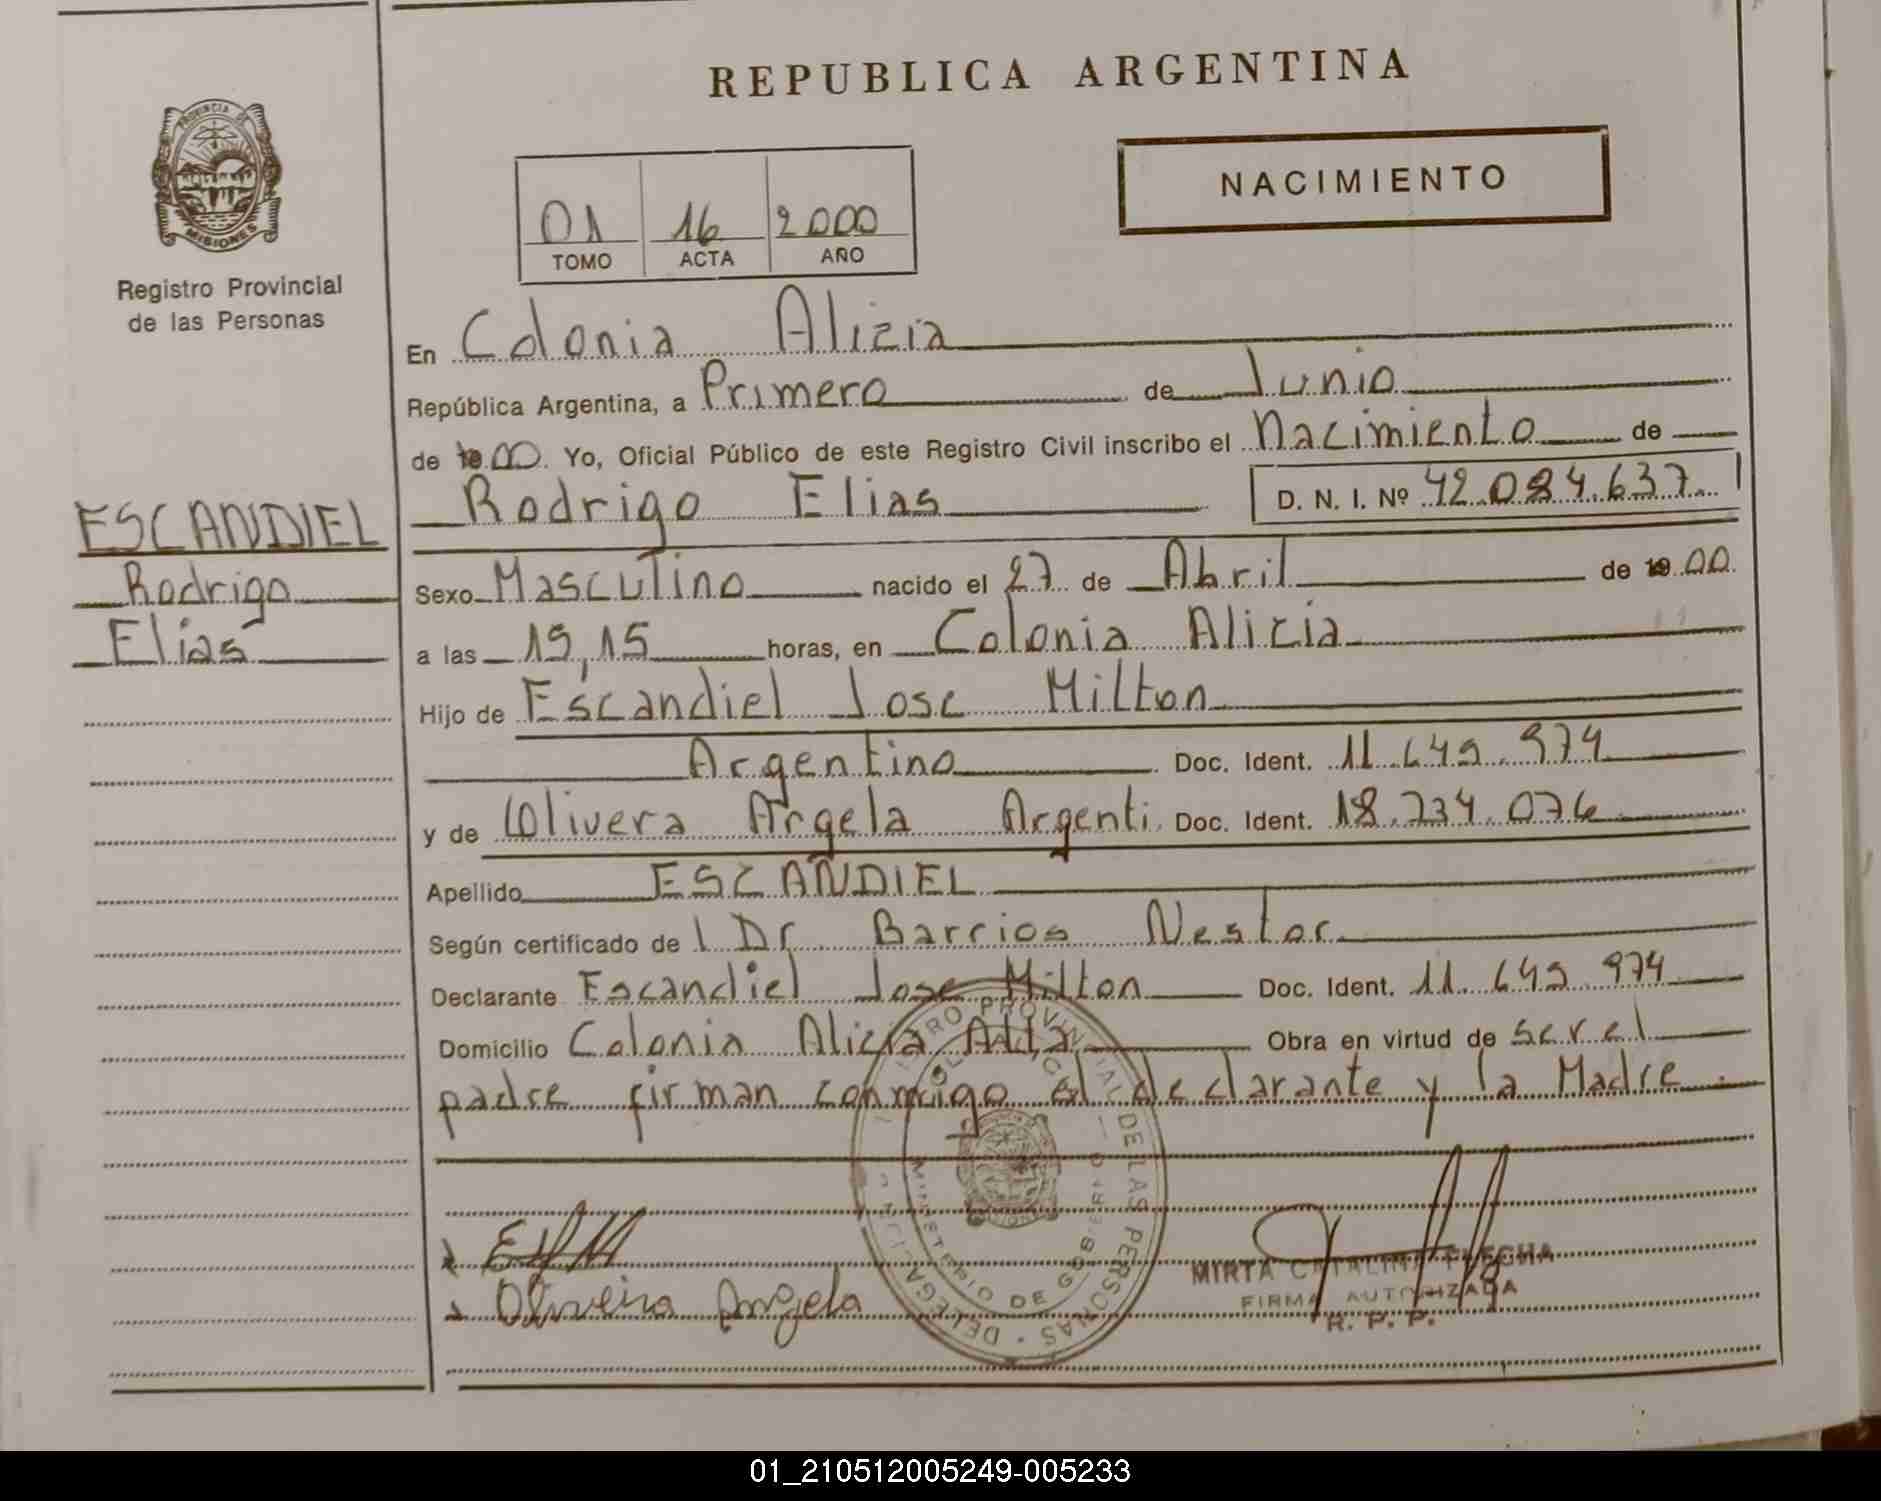 REPUBLICA ARGENTINA
PROVINCIA DE
MISIONES
Registro Provincial
de las Personas
01 16 2000
TOMO ACTA AÑO
NACIMIENTO
En Colonia Alicia
República Argentina, a Primero de Junio
de 00. Yo, Oficial Público de este Registro Civil inscribo el Nacimiento de
Rodrigo Elias D. N. I. Nº 42.084.637
ESCANDIEL
Rodrigo
Elias
Sexo Masculino nacido el 27 de Abril de 19 00
a las 19,15 horas, en Colonia Alicia
Hijo de Escandiel Jose Milton
Argentino Doc. Ident. 11.649.974
y de Olivera Angela Argenti. Doc. Ident. 18.734.076
Apellido ESCANDIEL
Según certificado de Dr Barrios Nestor
Declarante Escandiel Jose Milton Doc. Ident. 11.649.974
Domicilio Colonia Alicia Alta Obra en virtud de ser el
padre firman conmigo el declarante y la Madre.
REGISTRO PROVINCIAL DE LAS PERSONAS
MINISTERIO DE GOBIERNO
Oliveira Angela
MIRTA CATALINA FLECHA
FIRMA AUTORIZADA
R. P. P.
01_210512005249-005233